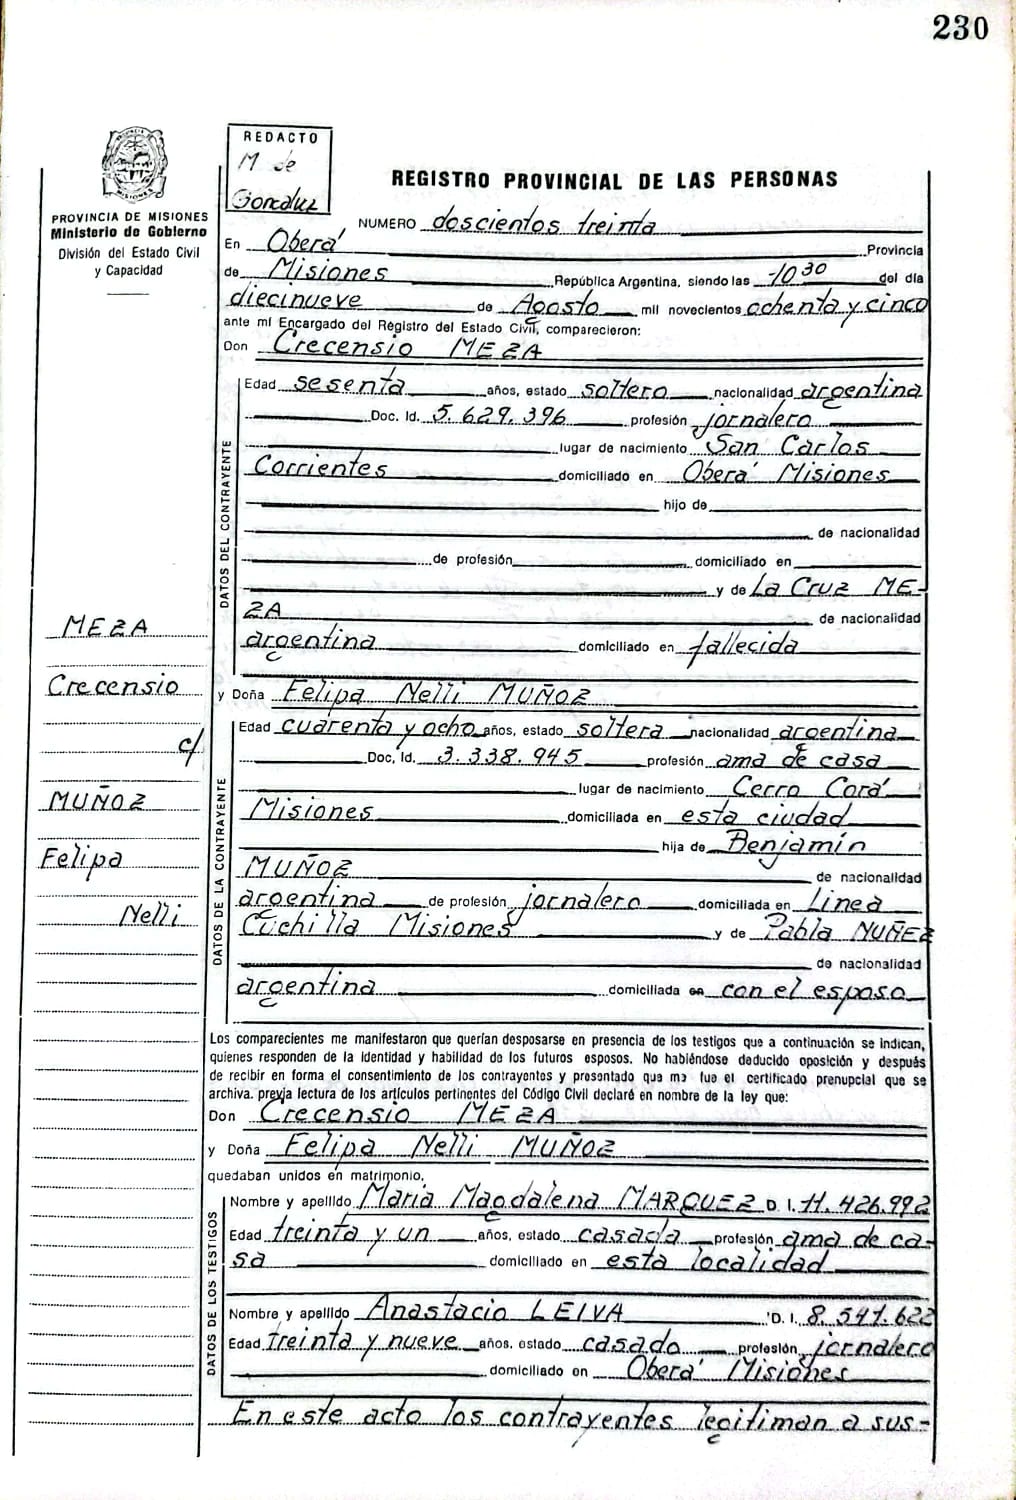 230
REDACTO
M de
Gonzalez
PROVINCIA DE MISIONES
Ministerio de Gobierno
División del Estado Civil
y Capacidad
REGISTRO PROVINCIAL DE LAS PERSONAS
NUMERO doscientos treinta
En Oberá Provincia
de Misiones República Argentina, siendo las 10 30 del día
diecinueve de Agosto mil novecientos ochenta y cinco
ante mí Encargado del Registro del Estado Civil, comparecieron:
Don Crecensio MEZA
DATOS DEL CONTRAYENTE
Edad sesenta años, estado soltero nacionalidad argentina
Doc. Id. 5.629.396 profesión jornalero
lugar de nacimiento San Carlos
Corrientes domiciliado en Oberá Misiones
hijo de
de nacionalidad
de profesión domiciliado en
y de La Cruz ME-
ZA de nacionalidad
argentina domiciliado en fallecida
MEZA
Crecensio
c/
MUÑOZ
Felipa
Nelli
y Doña Felipa Nelli MUÑOZ
DATOS DE LA CONTRAYENTE
Edad cuarenta y ocho años, estado soltera nacionalidad argentina
Doc. Id. 3.338.945 profesión ama de casa
lugar de nacimiento Cerro Corá
Misiones domiciliada en esta ciudad
hija de Benjamín
MUÑOZ de nacionalidad
argentina de profesión jornalero domiciliada en Linea
Cuchilla Misiones y de Pabla NUÑEZ
de nacionalidad
argentina domiciliada en con el esposo
Los comparecientes me manifestaron que querían desposarse en presencia de los testigos que a continuación se indican,
quienes responden de la identidad y habilidad de los futuros esposos. No habiéndose deducido oposición y después
de recibir en forma el consentimiento de los contrayentes y presentado que me fue el certificado prenupcial que se
archiva. previa lectura de los artículos pertinentes del Código Civil declaré en nombre de la ley que:
Don Crecensio MEZA
y Doña Felipa Nelli MUÑOZ
quedaban unidos en matrimonio.
DATOS DE LOS TESTIGOS
Nombre y apellido Maria Magdalena MARQUEZ D. I. 11.426.992
Edad treinta y un años, estado casada profesión ama de ca-
sa domiciliado en esta localidad
Nombre y apellido Anastacio LEIVA D. I. 8.541.622
Edad treinta y nueve años, estado casado profesión jornalero
domiciliado en Oberá Misiones
En este acto los contrayentes legitiman a sus-